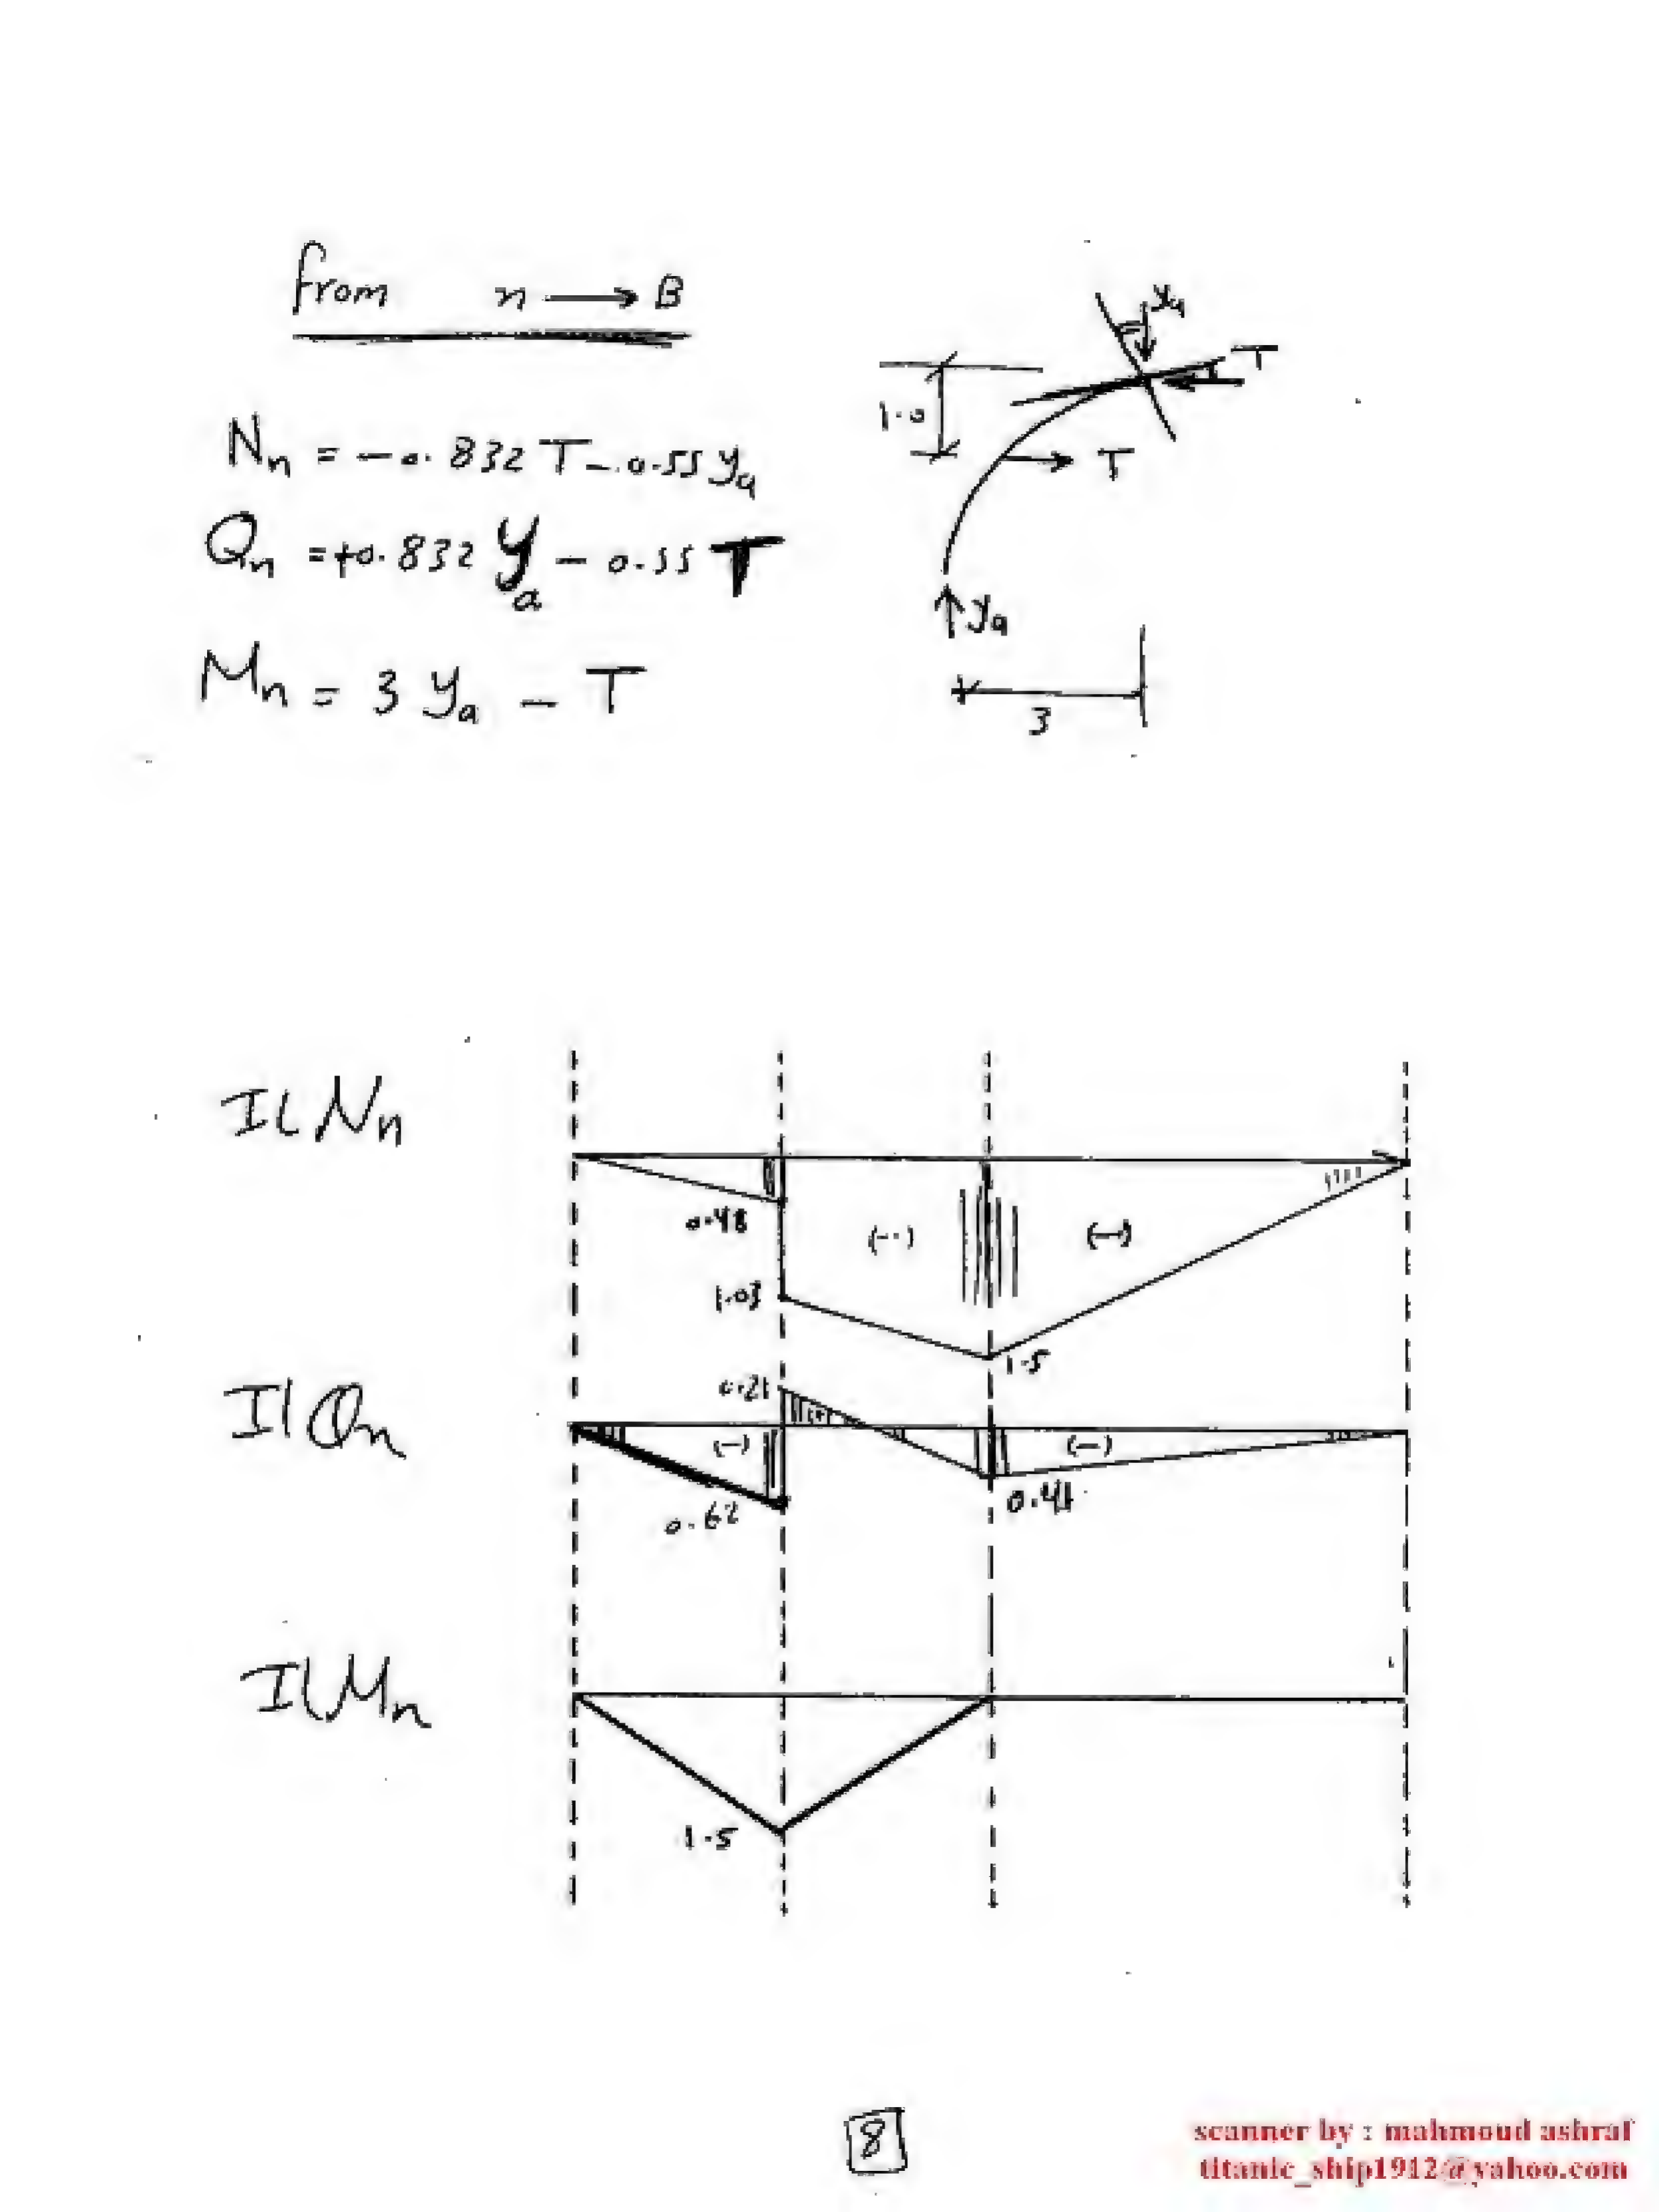 from n → B
Nn = -0.832 T - 0.55 ya
Qn = +0.832 ya - 0.55 T
Mn = 3 ya - T
ya
T
1.0
T
ya
3
IL Nn
0.48
(-)
(-)
1.03
1.5
IL Qn
0.21
(-)
(-)
0.62
0.41
IL Mn
1.5
8
scanner by : mahmoud ashraf
titanic_ship1912@yahoo.com